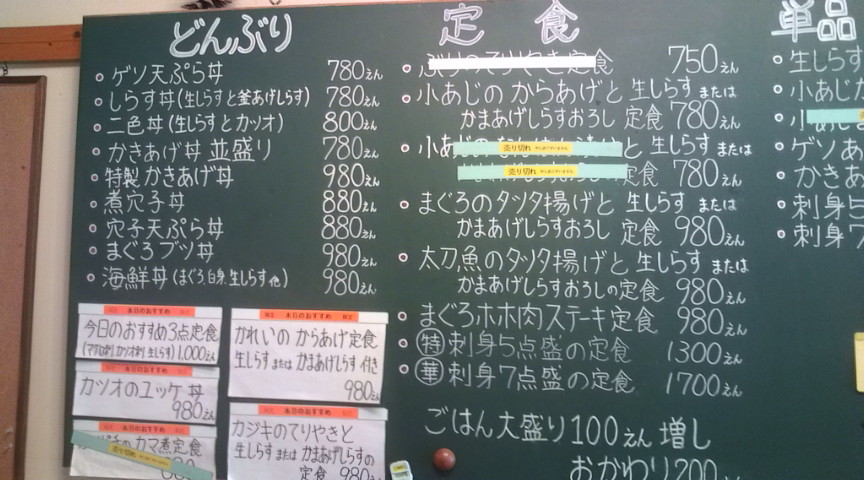 どんぶり
ゲソ天ぷら丼 780えん
しらす丼(生しらすと釜あげしらす) 780えん
二色丼(生しらすとカツオ) 800えん
かきあげ丼 並盛り 780えん
特製かきあげ丼 980えん
煮穴子丼 880えん
穴子天ぷら丼 880えん
まぐろブツ丼 980えん
海鮮丼(まぐろ、白身、生しらす他) 980えん
本日のおすすめ
今日のおすすめ3点定食
カツオ刺 生しらす) 1,000えん
本日のおすすめ
カツオのユッケ丼
980えん
本日のおすすめ
カマ煮定食
売り切れ
本日のおすすめ
かれいのからあげ定食
生しらす または かまあげしらす 付き
980えん
本日のおすすめ
カジキのてりやきと
生しらす または かまあげしらすの
定食 980えん
定食
ぶりのてりやき定食 750えん
小あじのからあげと 生しらす または
かまあげしらすおろし 定食 780えん
小あじ 売り切れ と 生しらす または
売り切れ 定食 780えん
まぐろのタツタ揚げと 生しらす または
かまあげしらすおろし 定食 980えん
太刀魚のタツタ揚げと 生しらす または
かまあげしらすおろしの定食 980えん
まぐろホホ肉ステーキ定食 980えん
特 刺身5点盛の定食 1300えん
華 刺身7点盛の定食 1700えん
ごはん大盛り100えん増し
おかわり200
単品
生しらす
小あじ
小あじ
ゲソあ
かきあ
刺身5
刺身7